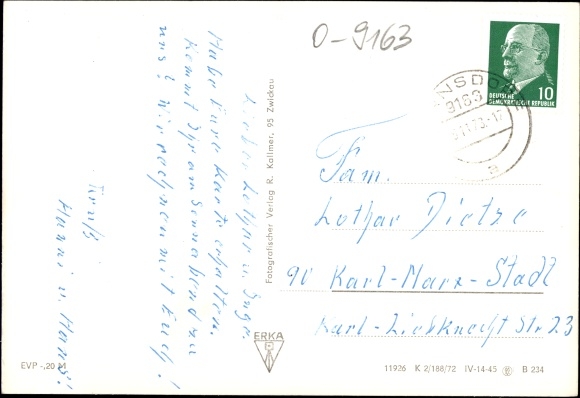 O-9163
Lieber Lothar u. Inge.
Habe Eure Karte erhalten.
Kommt Ihr am Sonnabend zu
uns? Wir rechnen mit Euch!
Gruß
Hanni u. Hans!
Fotografischer Verlag R. Kallmer, 95 Zwickau
ERKA
EVP -,20 M
DEUTSCHE
DEMOKRATISCHE REPUBLIK
10
NSDO
9163
11.73-17
a
Fam.
Lothar Dietze
90 Karl-Marx-Stadt
Karl-Liebknecht Str. 23
11926 K 2/188/72 IV-14-45 B 234